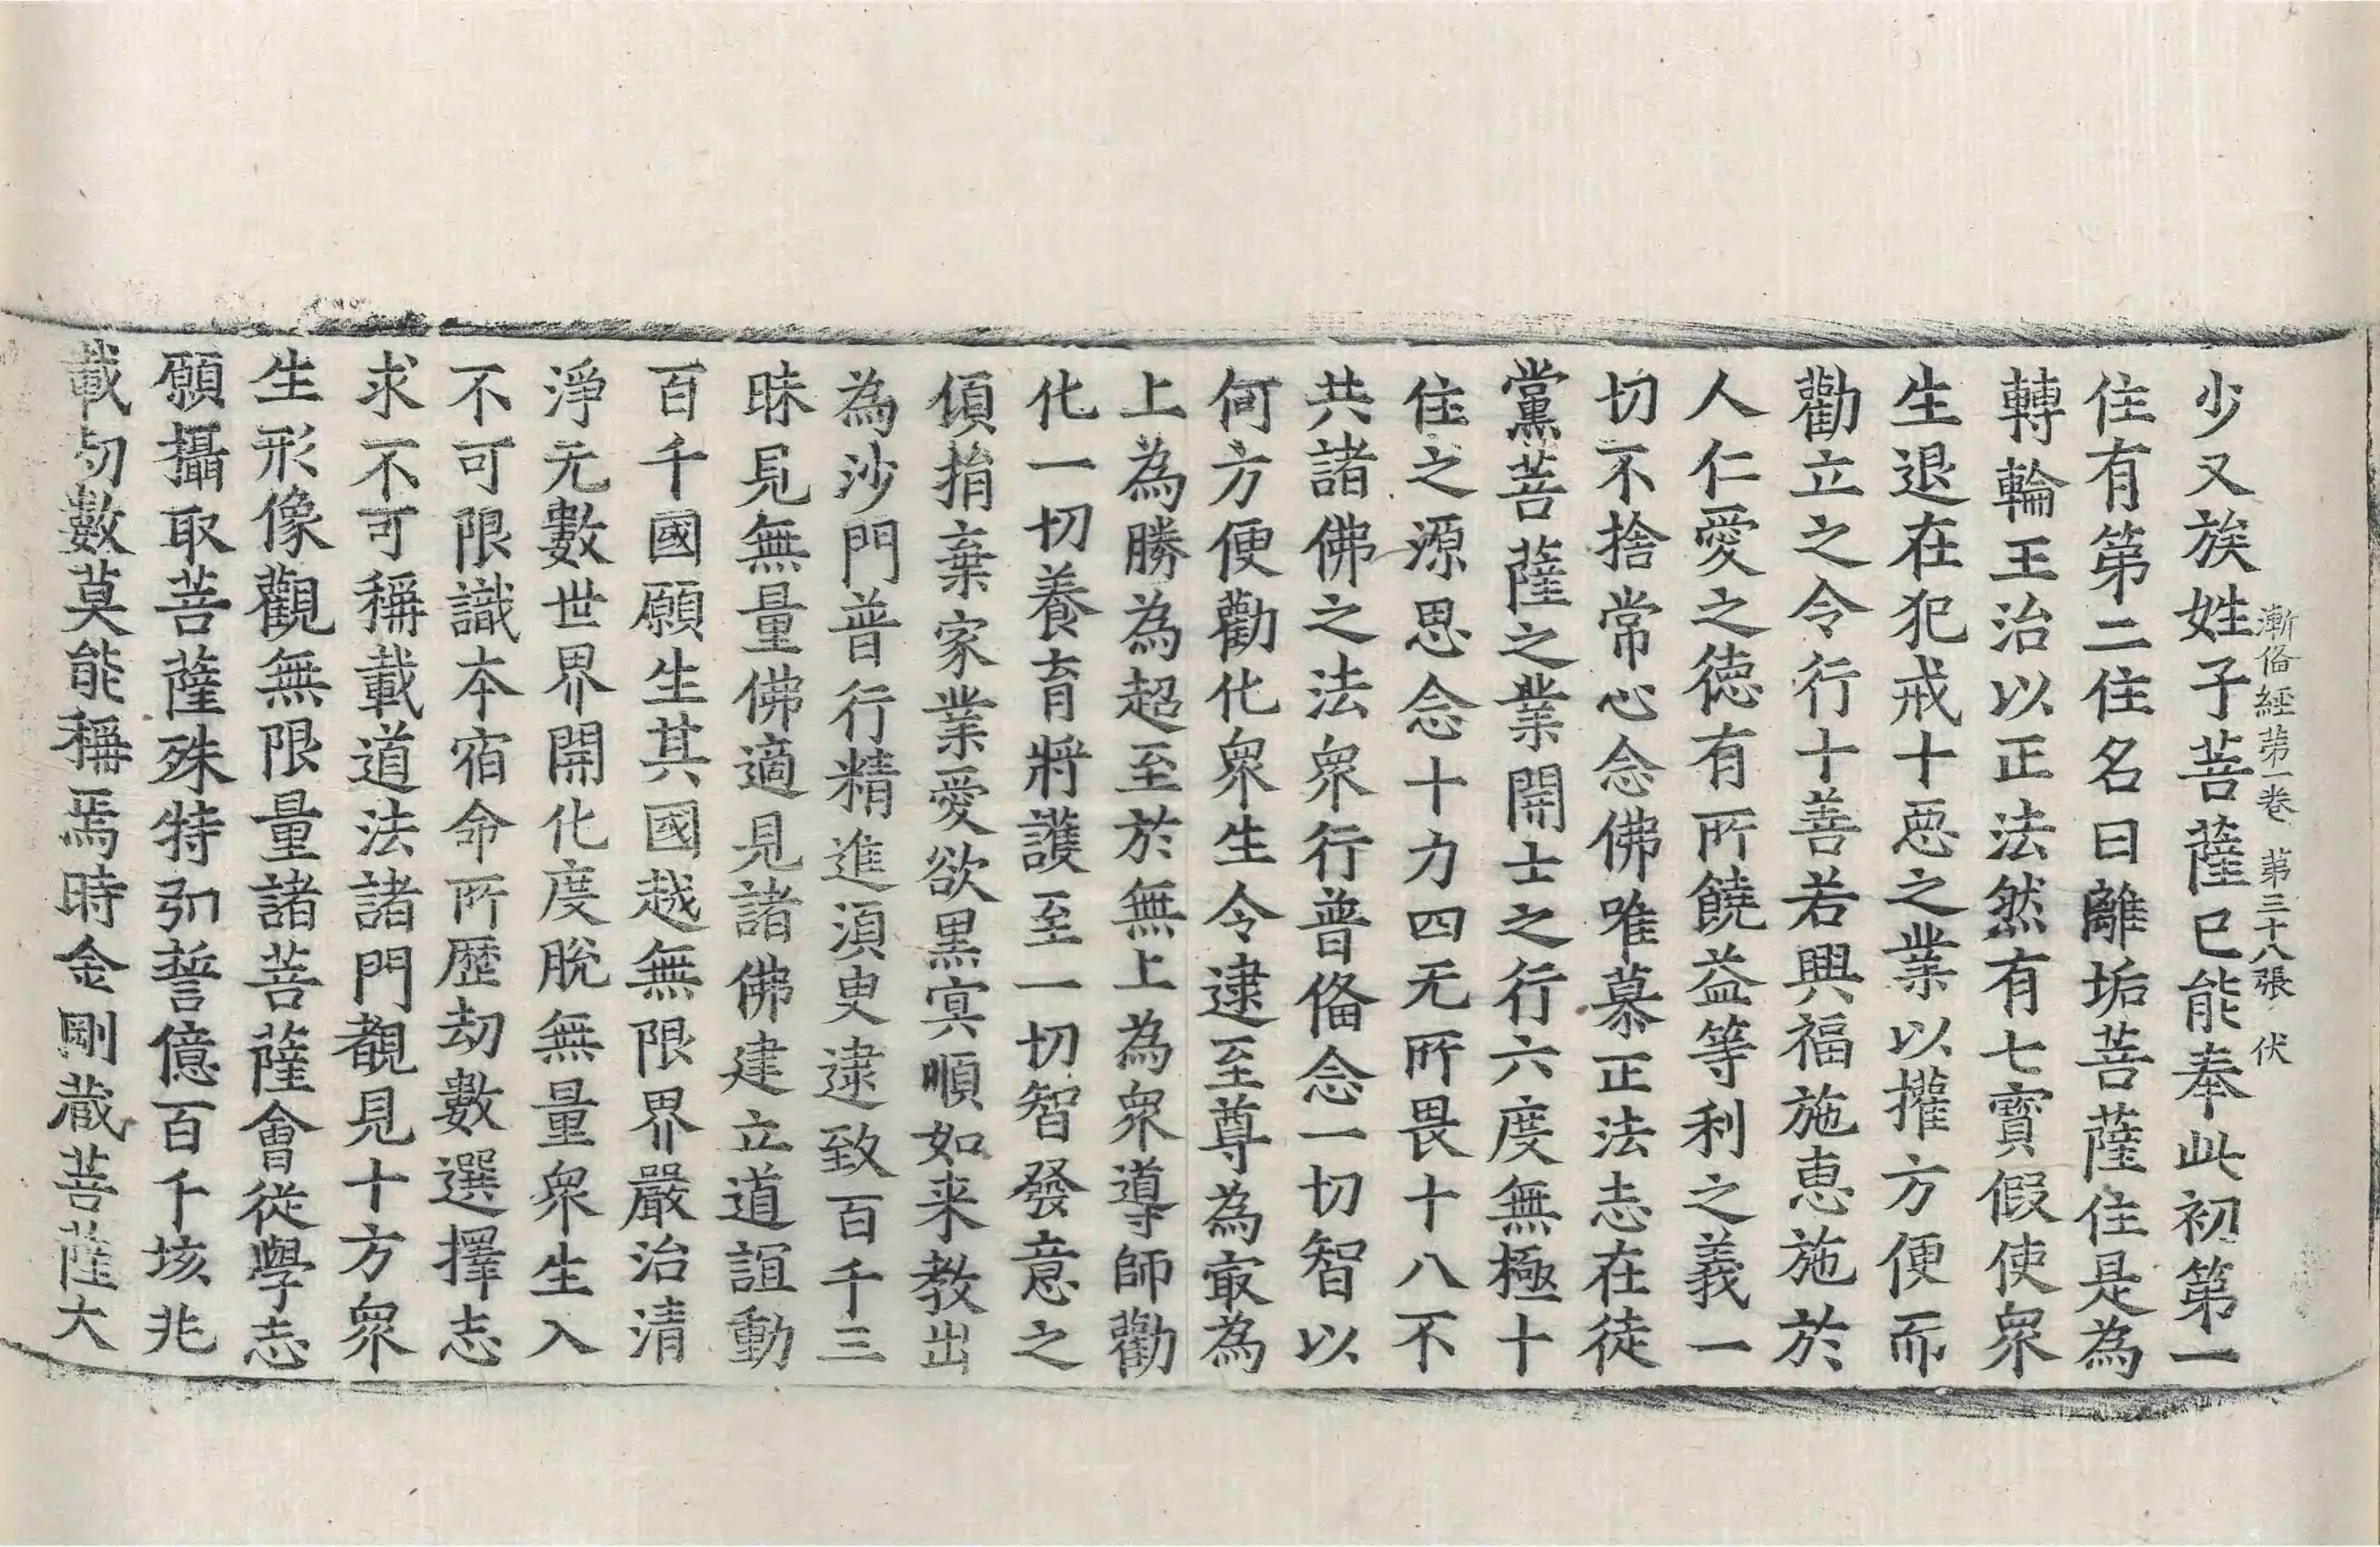 漸俻經第一卷 第三十八張 伏
少又族姓子菩薩已能奉此初第一
住有第二住名曰離垢菩薩住是為
轉輪王治以正法然有七寳假使衆
生退在犯戒十惡之業以攉方便而
勸立之令行十善若興福施恵施於
人仁愛之徳有所饒益等利之義一
切不捨常心念佛唯慕正法志在徒
黨菩薩之業開士之行六度無極十
住之源思念十力四无所畏十八不
共諸佛之法衆行普俻念一切智以
何方便勸化衆生令逮至尊為㝡為
上為勝為超至於無上為衆導師勸
化一切養育將護至一切智發意之
頃捐棄家業愛欲黒㝠順如来教出
為沙門普行精進湏㬰逮致百千三
昧見無量佛適見諸佛建立道誼動
百千國願生其國越無限界嚴治清
淨无數世界開化度脫無量衆生入
不可限識本宿命所歷劫數選擇志
求不可稱載道法諸門覩見十方衆
生形像觀無限量諸菩薩會從學志
願攝取菩薩殊特弘誓億百千垓兆
載劫數莫能稱焉時金剛蔵菩薩大